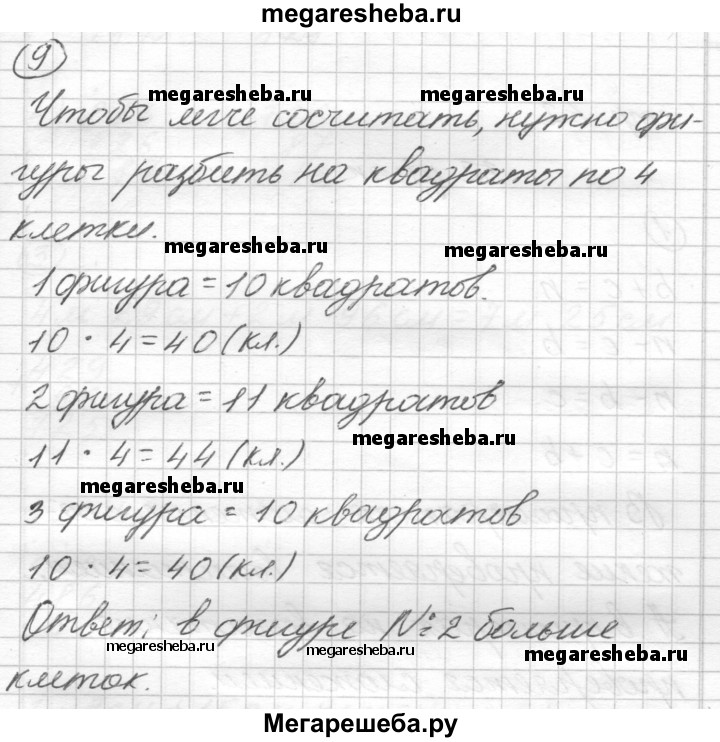 megaresheba.ru
9
megaresheba.ru megaresheba.ru
Чтобы легче сосчитать, нужно фи-
гуры разбить на квадраты по 4
клетки.
megaresheba.ru
1 фигура = 10 квадратов.
10 · 4 = 40 (кл.)
2 фигура = 11 квадратов
megaresheba.ru
11 · 4 = 44 (кл.)
megaresheba.ru
3 фигура = 10 квадратов
10 · 4 = 40 (кл.)
Ответ: в фигуре № 2 больше
megaresheba.ru megaresheba.ru megaresheba.ru
клеток.
Мегарешеба.ру